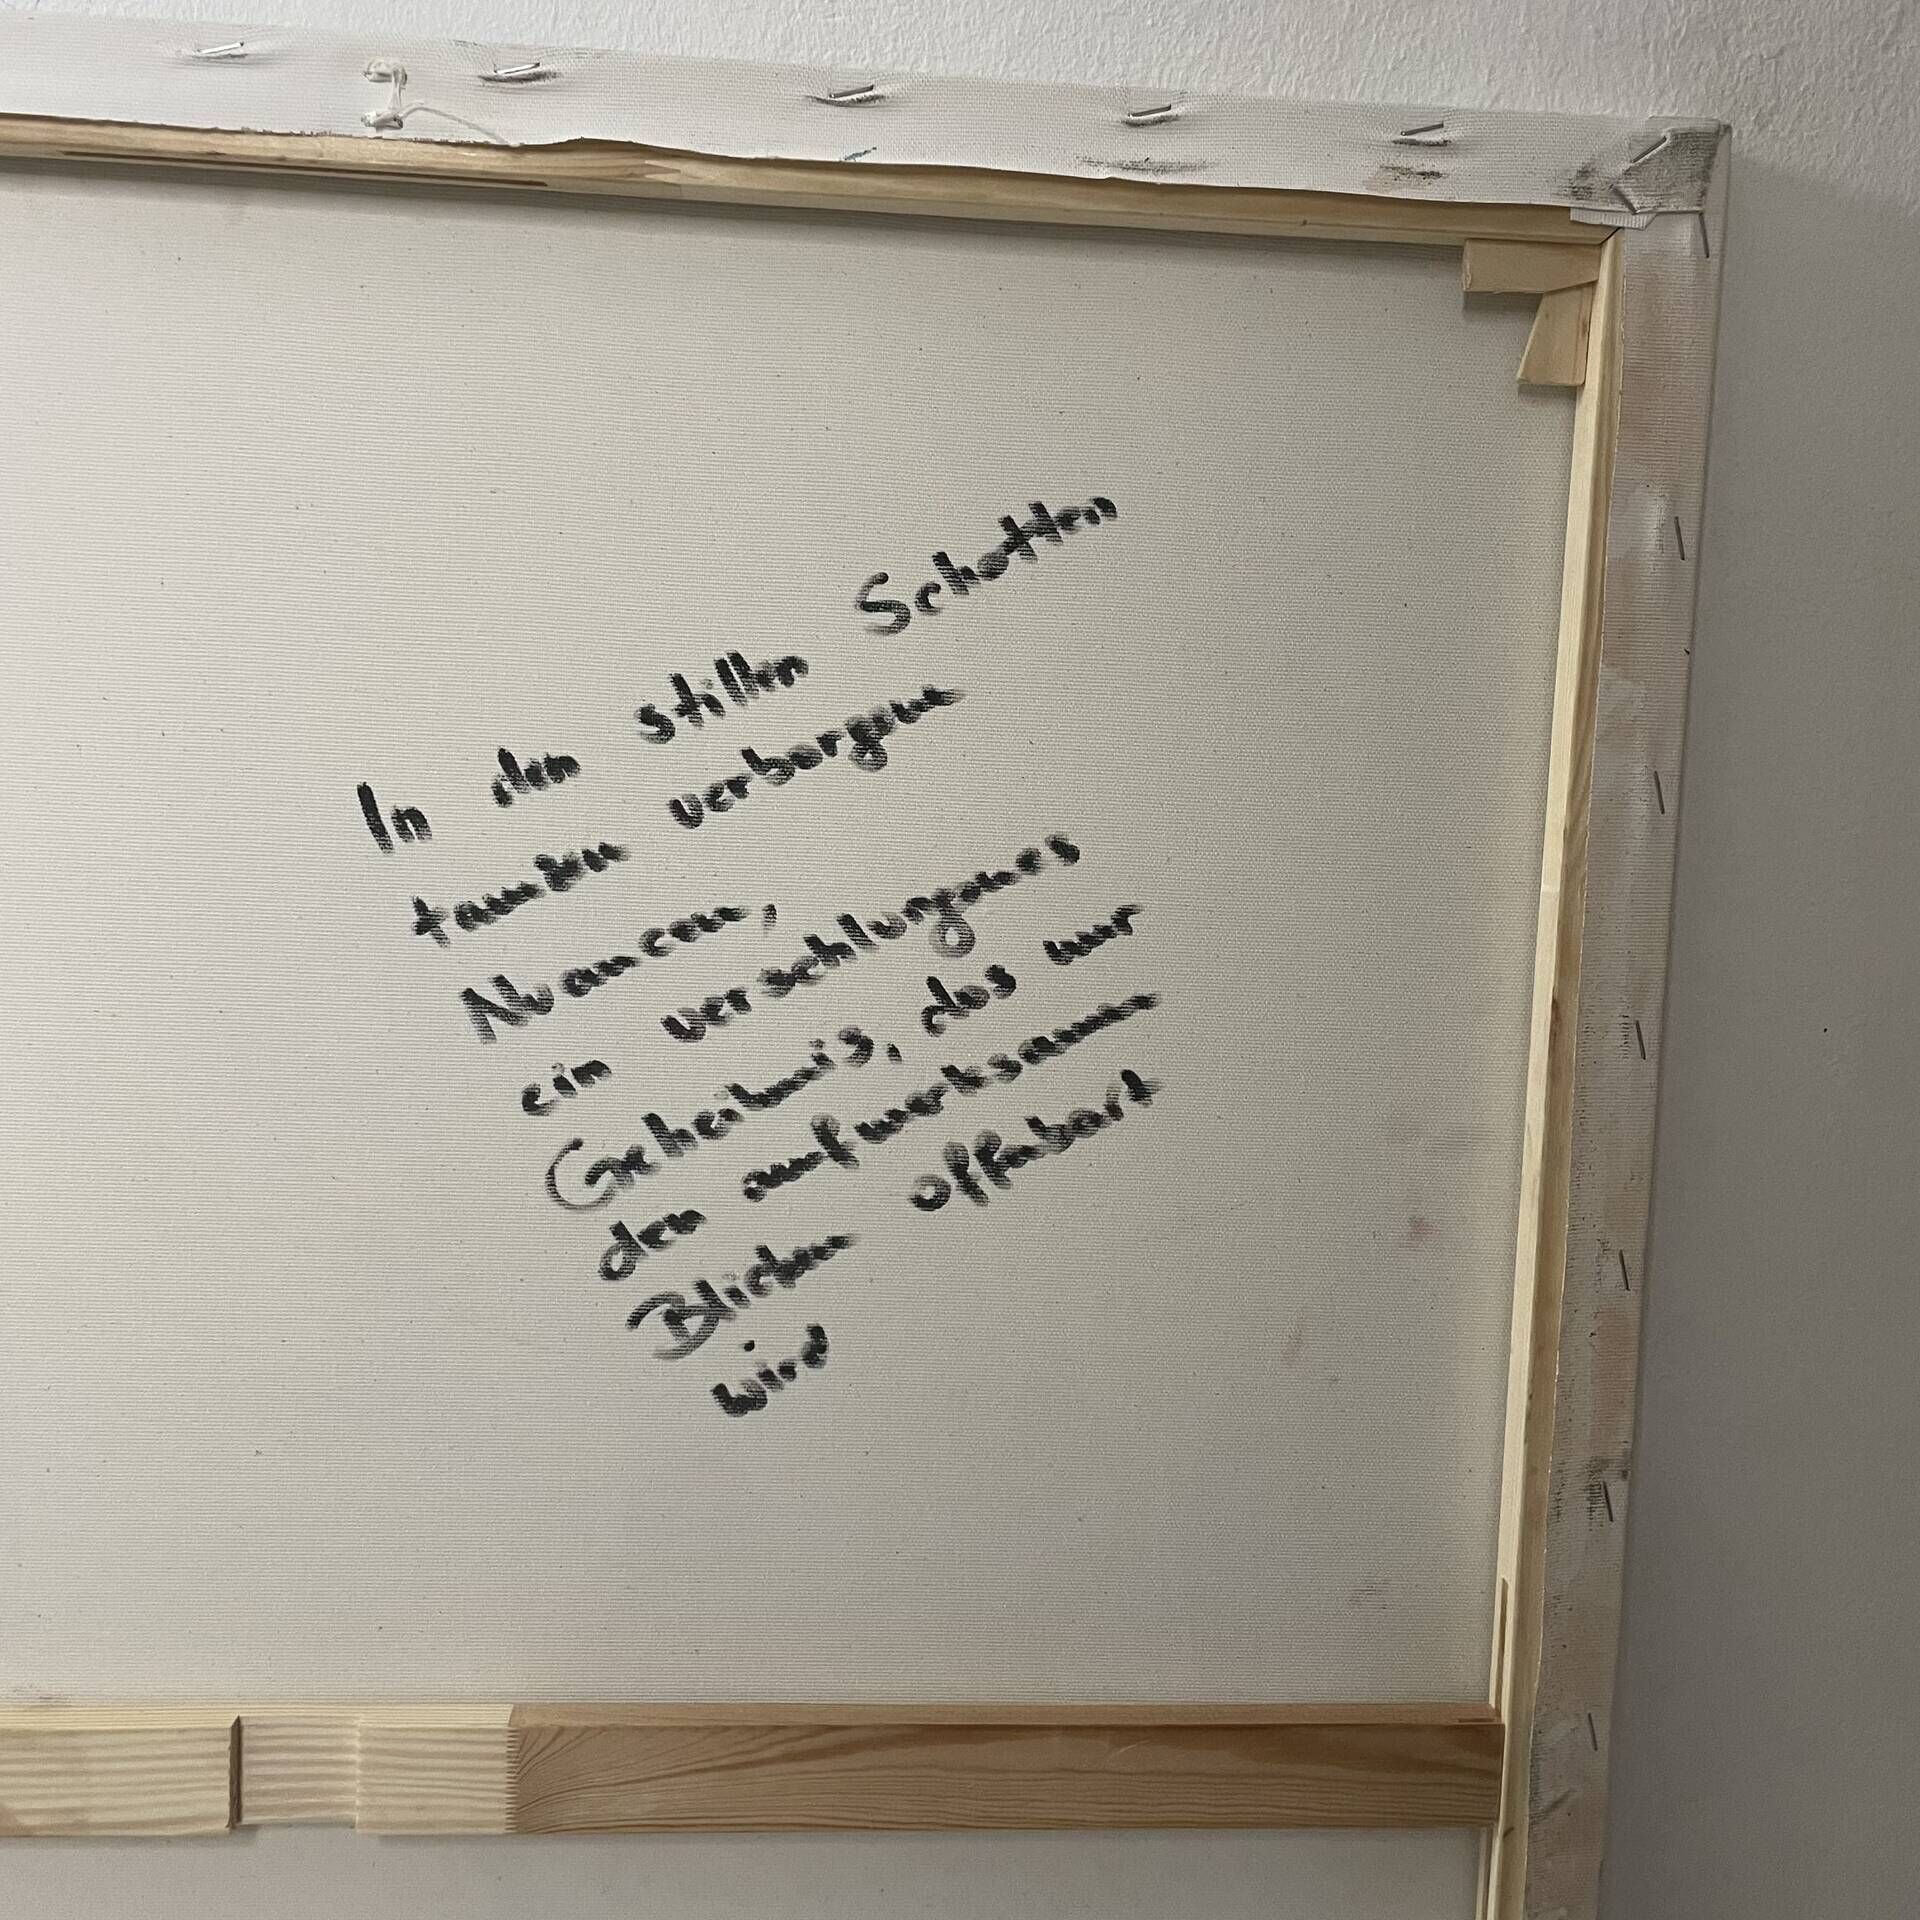 In den stillen Schatten
tanzen verborgene
Nuancen,
ein verschlungenes
Geheimnis, das nur
den aufmerksamen
Blicken offenbart
wird